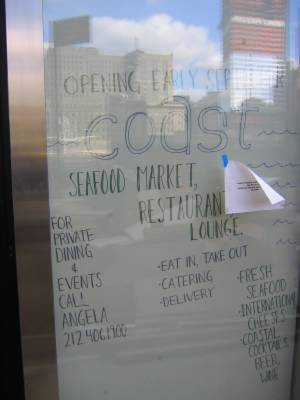 OPENING EARLY SEP
coast
SEAFOOD MARKET,
RESTAURANT
LOUNGE.
FOR
PRIVATE
DINING
&
EVENTS
CALL
ANGELA
212.406.1900
·EAT IN, TAKE OUT
·CATERING
·DELIVERY
·FRESH
SEAFOOD
·INTERNATIONAL
CHEESES
·COASTAL
COCKTAILS
BEER,
WINE